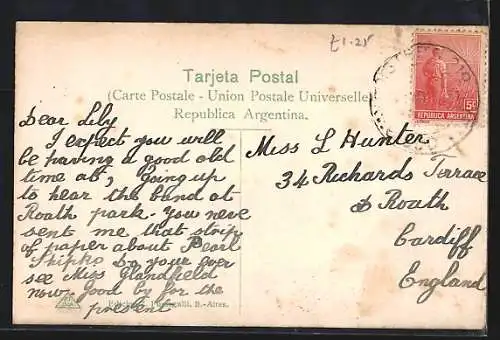 £1-25
Tarjeta Postal
(Carte Postale - Union Postale Universelle)
Republica Argentina.
5c
REPUBLICA ARGENTINA
Dear Lily
I expect you will
be having a good old
time at, going up
to hear the band at
Roath park. You neve
sent me that strip
of paper about Pearl
Skipko Do your ever
see Miss Glandfield
now good by for the
present
Miss L Hunter
34 Richards Terrace
Roath
Cardiff
England
B.-Aires.